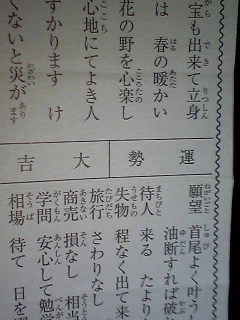 宝も出来て立身
は 春の暖かい
花の野を心楽し
心地にてよき人
すかります け
くないと災があります
運勢
大吉
願望 首尾よく叶う
油断すれば破
待人 来る たより
失物 程なく出て来
旅行 さわりなし
商売 損なし 相当
学問 安心して勉学
相場 待て 日を